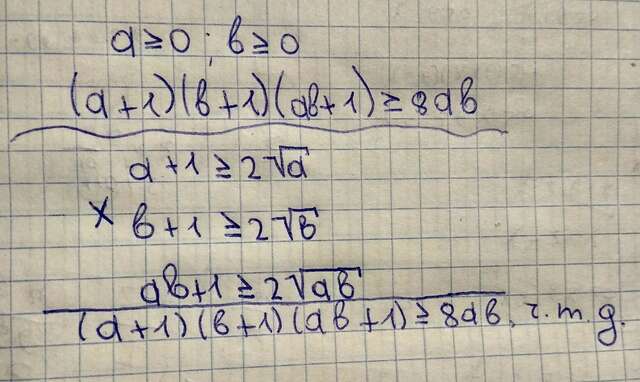 a ≥ 0; b ≥ 0
(a+1)(b+1)(ab+1) ≥ 8ab
a+1 ≥ 2√a
× b+1 ≥ 2√b
ab+1 ≥ 2√ab
(a+1)(b+1)(ab+1) ≥ 8ab, ч.т.д.